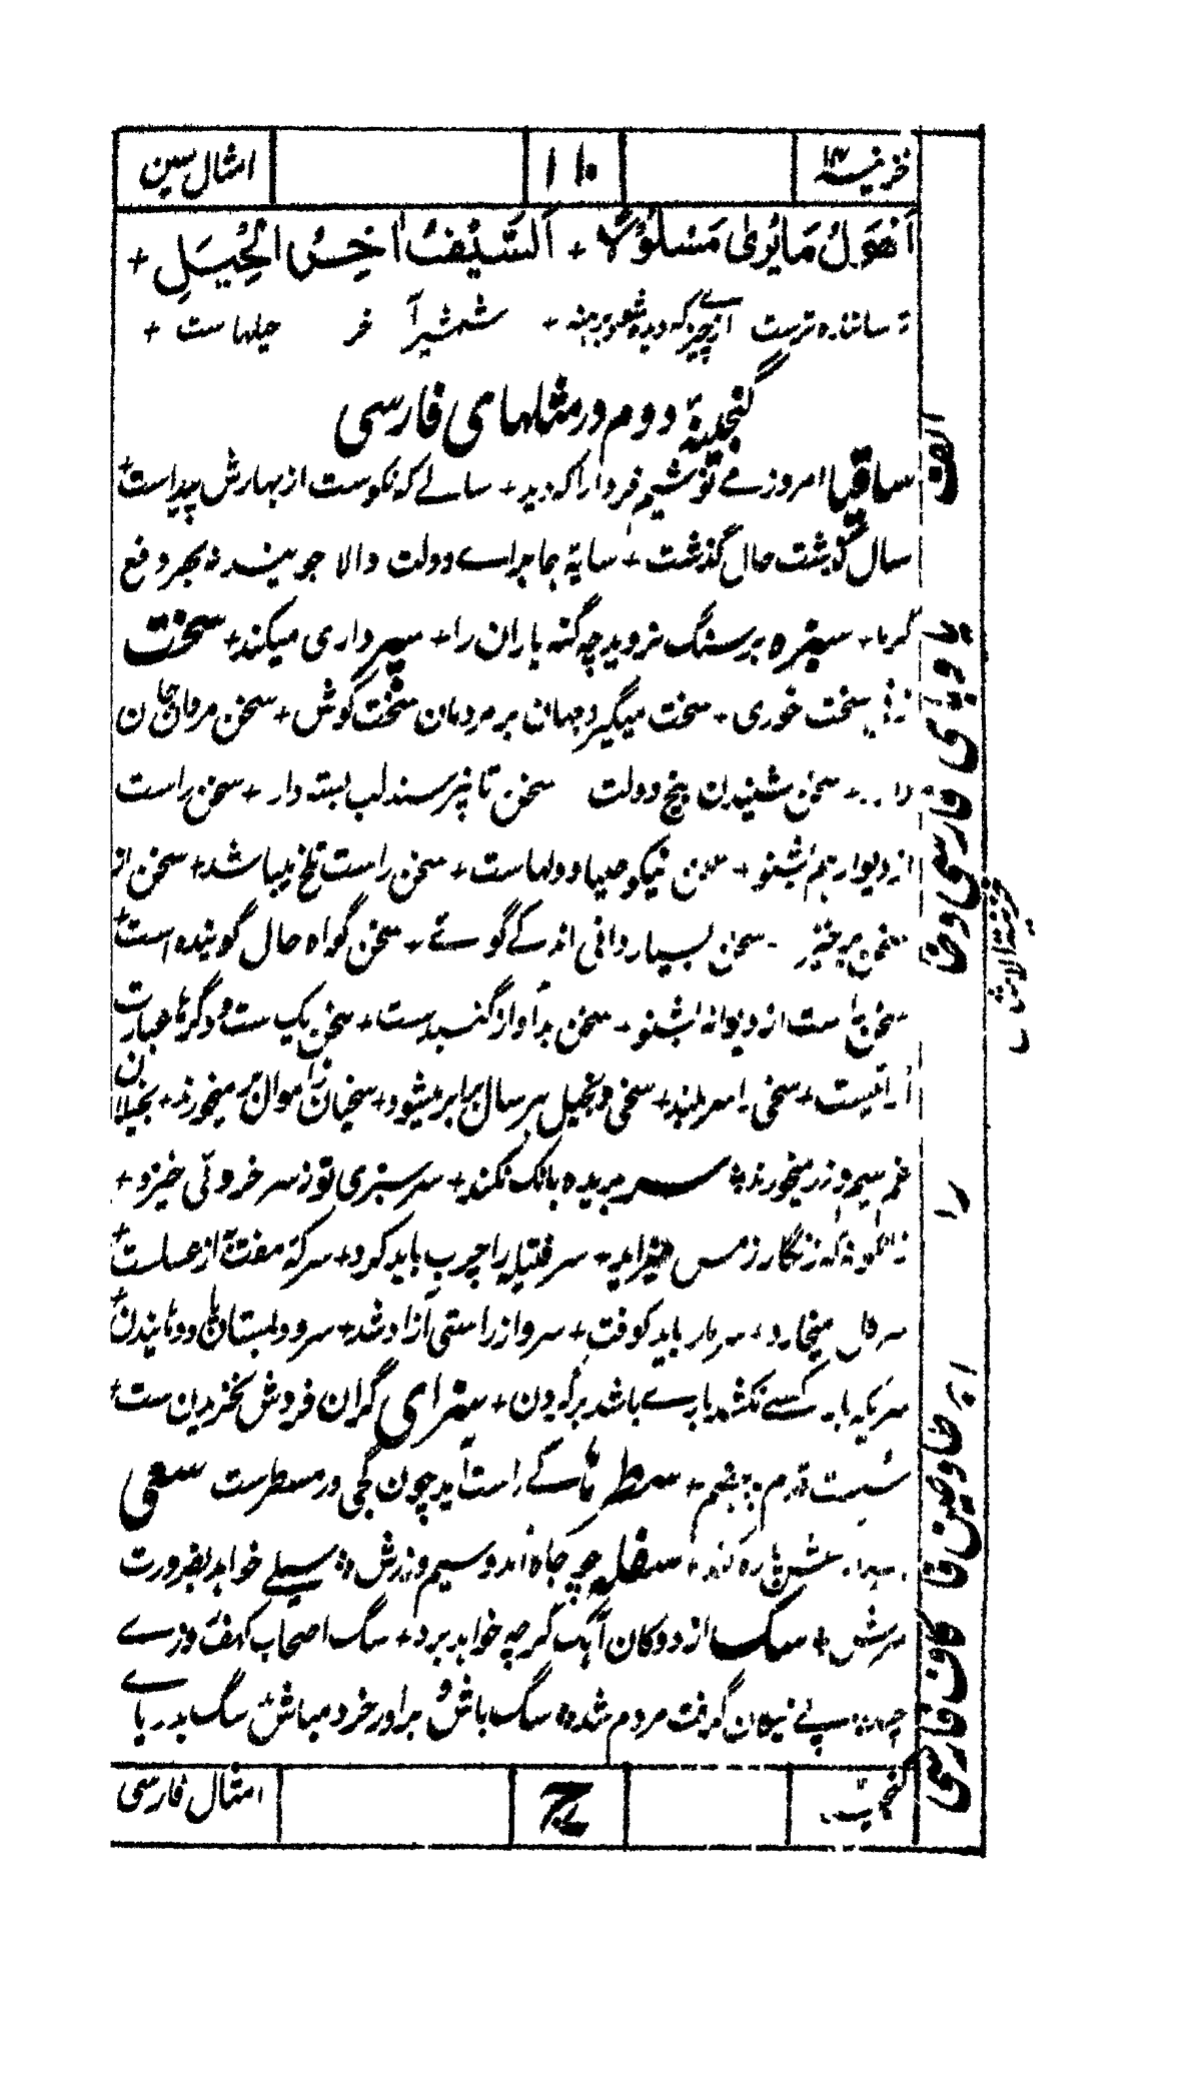 خزینه ۱۳
امثال سین
اَهْوَلُ مَا یُرٰی مَسْلُوْلًا + اَلسَّیْفُ اٰخِرُ الْحِیَلِ +
ترساننده ترست از چیزے که دیده شود برهنه + شمشیر آخر حیلهاست +
گنجینهٔ دوم در مثلهای فارسی
ساقیا امروز مے نوشیم فردا را که دید + سالے که نکوست از بهارش پیداست +
سال گذشت حال گذشت + سایهٔ جا براے دولت والا جویند نه بهر دفع
گرما + سبزه بر سنگ نروید چه گنه باران را + سپر داری میکند + سخت
سخت خوری + سخت میگیرد جهان بر مردمان سخت کوش + سخن مردان جان
دارد + سخن شنیدن گنج دولت سخن تا نپرسند لب بسته دار + سخن راست
از دیوار هم بشنو + سخن نیکو صیاد دلهاست + سخن راست تلخ میباشد + سخن از
سخن برخیزد - سخن بسیار دانی اندکے گوئے + سخن گواه حال گوینده است +
سخن راست از دیوانه بشنو + سخن بدآواز گنبدست + سخن یک ست و دگرها عبارت
آرائیست + سخی را سر بلند + سخی و بخیل هر سال برابر میشود + سخیان ز اموال بر میخورند + بخیلان
غم سیم و زر میخورند + سر بریده بانگ نکند + سرسبزی تو ز سرخروئی خیزد +
زانگونه که زنگار ز مس میزاید + سر فتیله را چرب باید کرد + سرکهٔ مفت از عسلست +
سر کل میخارد + سر مار باید کوفت + سرو از راستی آزاد شد + سرود بمستان
کسے نکشد بارے باشد بر گردن + سزای گران فروش نخریدن ست +
سطرها کے راست آید چون کجی در مسطرست سعی
سفله چو جاه آمد و سیم و زرش + سیلے خواهد بضرورت
سرش + سگ از دوکان آهنگر چه خواهد برد + سگ اصحاب کهف روزے
چند + پے نیکان گرفت مردم شد + سگ باش و برادر خرد مباش + سگ بدریاے
گنجینه
امثال فارسی
الف
را
کاف فارسی
خزینة الامثال